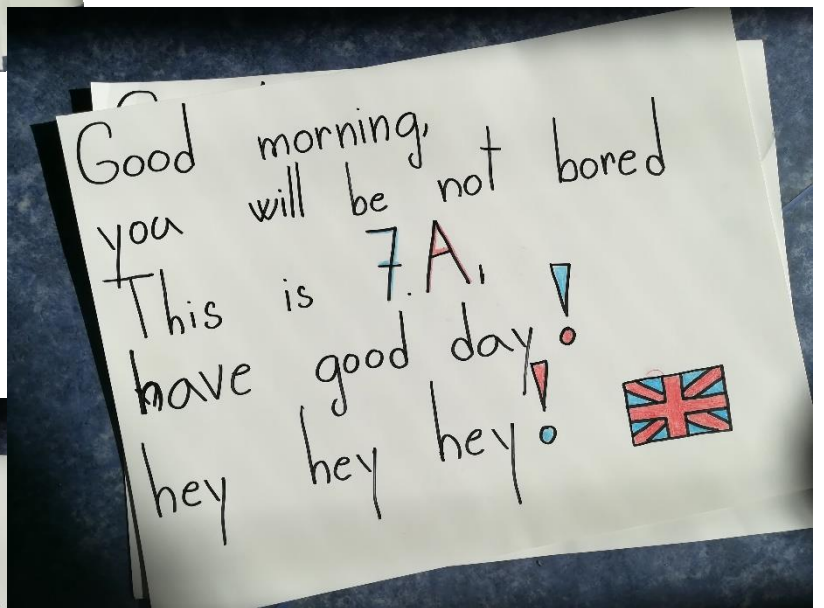 Good morning,
you will be not bored
This is 7.A,
have good day!
hey hey hey!